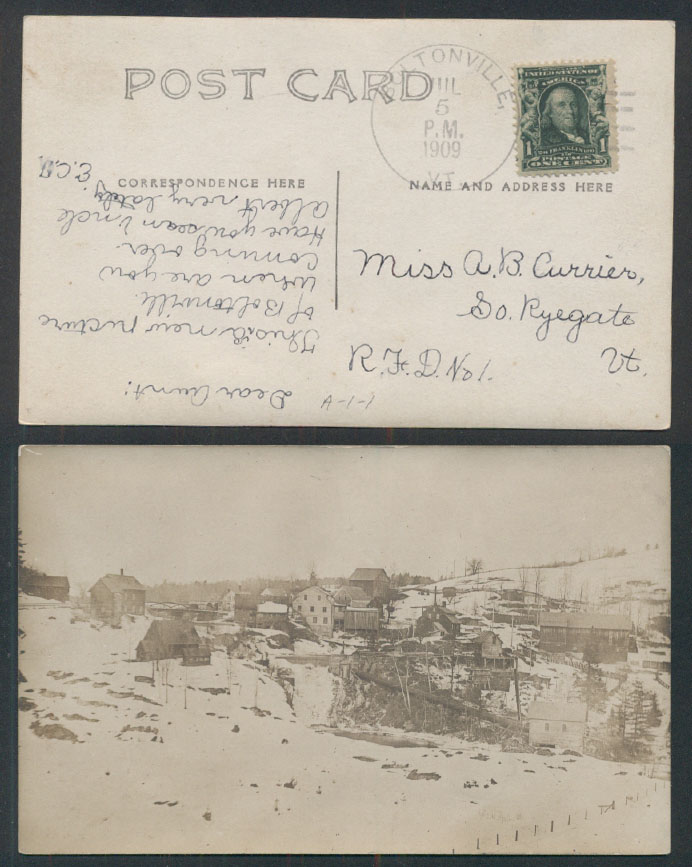 POST CARD
BOLTONVILLE,
JUL
5
P.M.
1909
VT.
UNITED STATES OF
AMERICA
1 FRANKLIN 1
POSTAGE
ONE CENT
CORRESPONDENCE HERE
NAME AND ADDRESS HERE
Miss A. B. Currier,
So. Ryegate
R.F.D. No 1. Vt.
A-1-1
Dear Aunt:
This is a new picture
of Boltonville.
When are you
Coming over.
Have you seen Uncle
Albert very lately